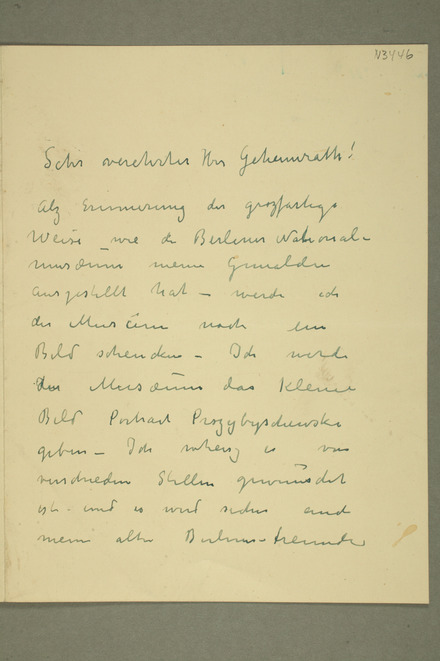 N3446
Sehr verehrter Herr Geheimrath!
Alz Erinnerung der grozfartige
Weise wie die Berliner National-
musæum meine Gemälde
ausgestellt hat – werde ich
der Musæum noch ein
Bild schenken – Ich werde
der Musæum das Kleine
Bild Portrait Przybyschewski
geben – Ich es von
verschieden Stellen gewünscht
ist – und es wird sicher and
meine alte Berliner-freunde